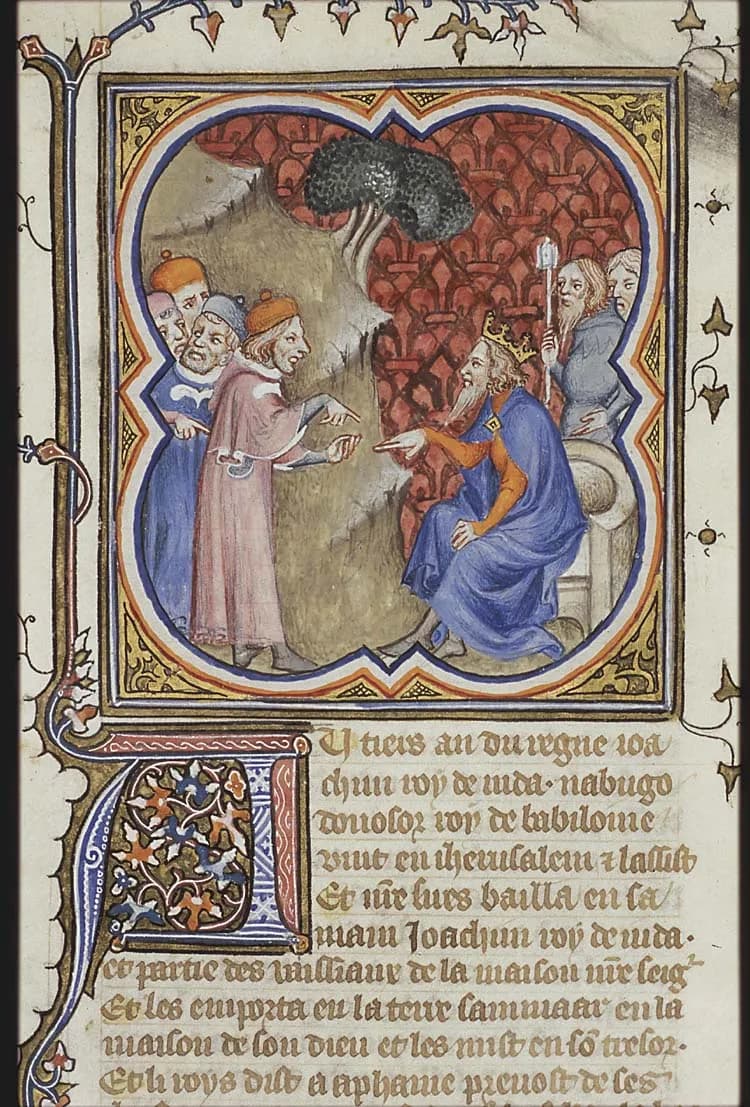 AU tiers an du regne ioa
chim roy de iuda. nabugo
donosor roy de babilonie
vint en iherusalem ⁊ lassist
Et nr̃e sires bailla en sa
main Joachim roy de iuda.
et partie des vaissiaux de la maison nr̃e seigr
Et les emporta en la terre sannaar en la
maison de son dieu et les mist en sõ tresor.
Et li roys dist a aphane prevost de ses